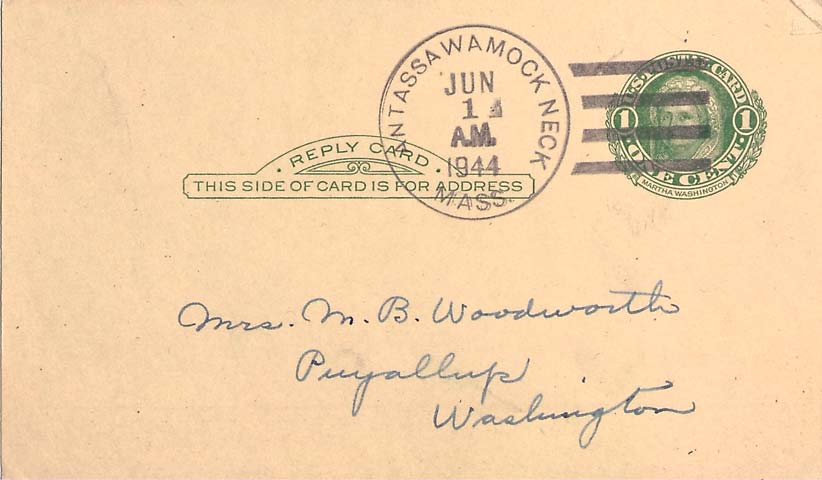 ANTASSAWAMOCK NECK
JUN
14
A.M.
1944
MASS.
U.S. POSTAL CARD
1 1
ONE CENT
MARTHA WASHINGTON
· REPLY CARD ·
THIS SIDE OF CARD IS FOR ADDRESS
Mrs. M. B. Woodworth
Puyallup
Washington